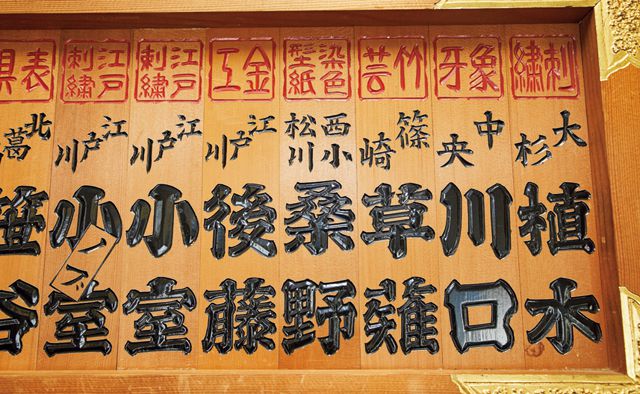 刺繍
大杉
植水
象牙
中央
川口
竹芸
篠崎
草薙
染色型紙
西小松川
桑野
金工
江戸川
後藤
江戸刺繍
江戸川
小室
江戸刺繍
江戸川
小室
表具
北葛
笹谷